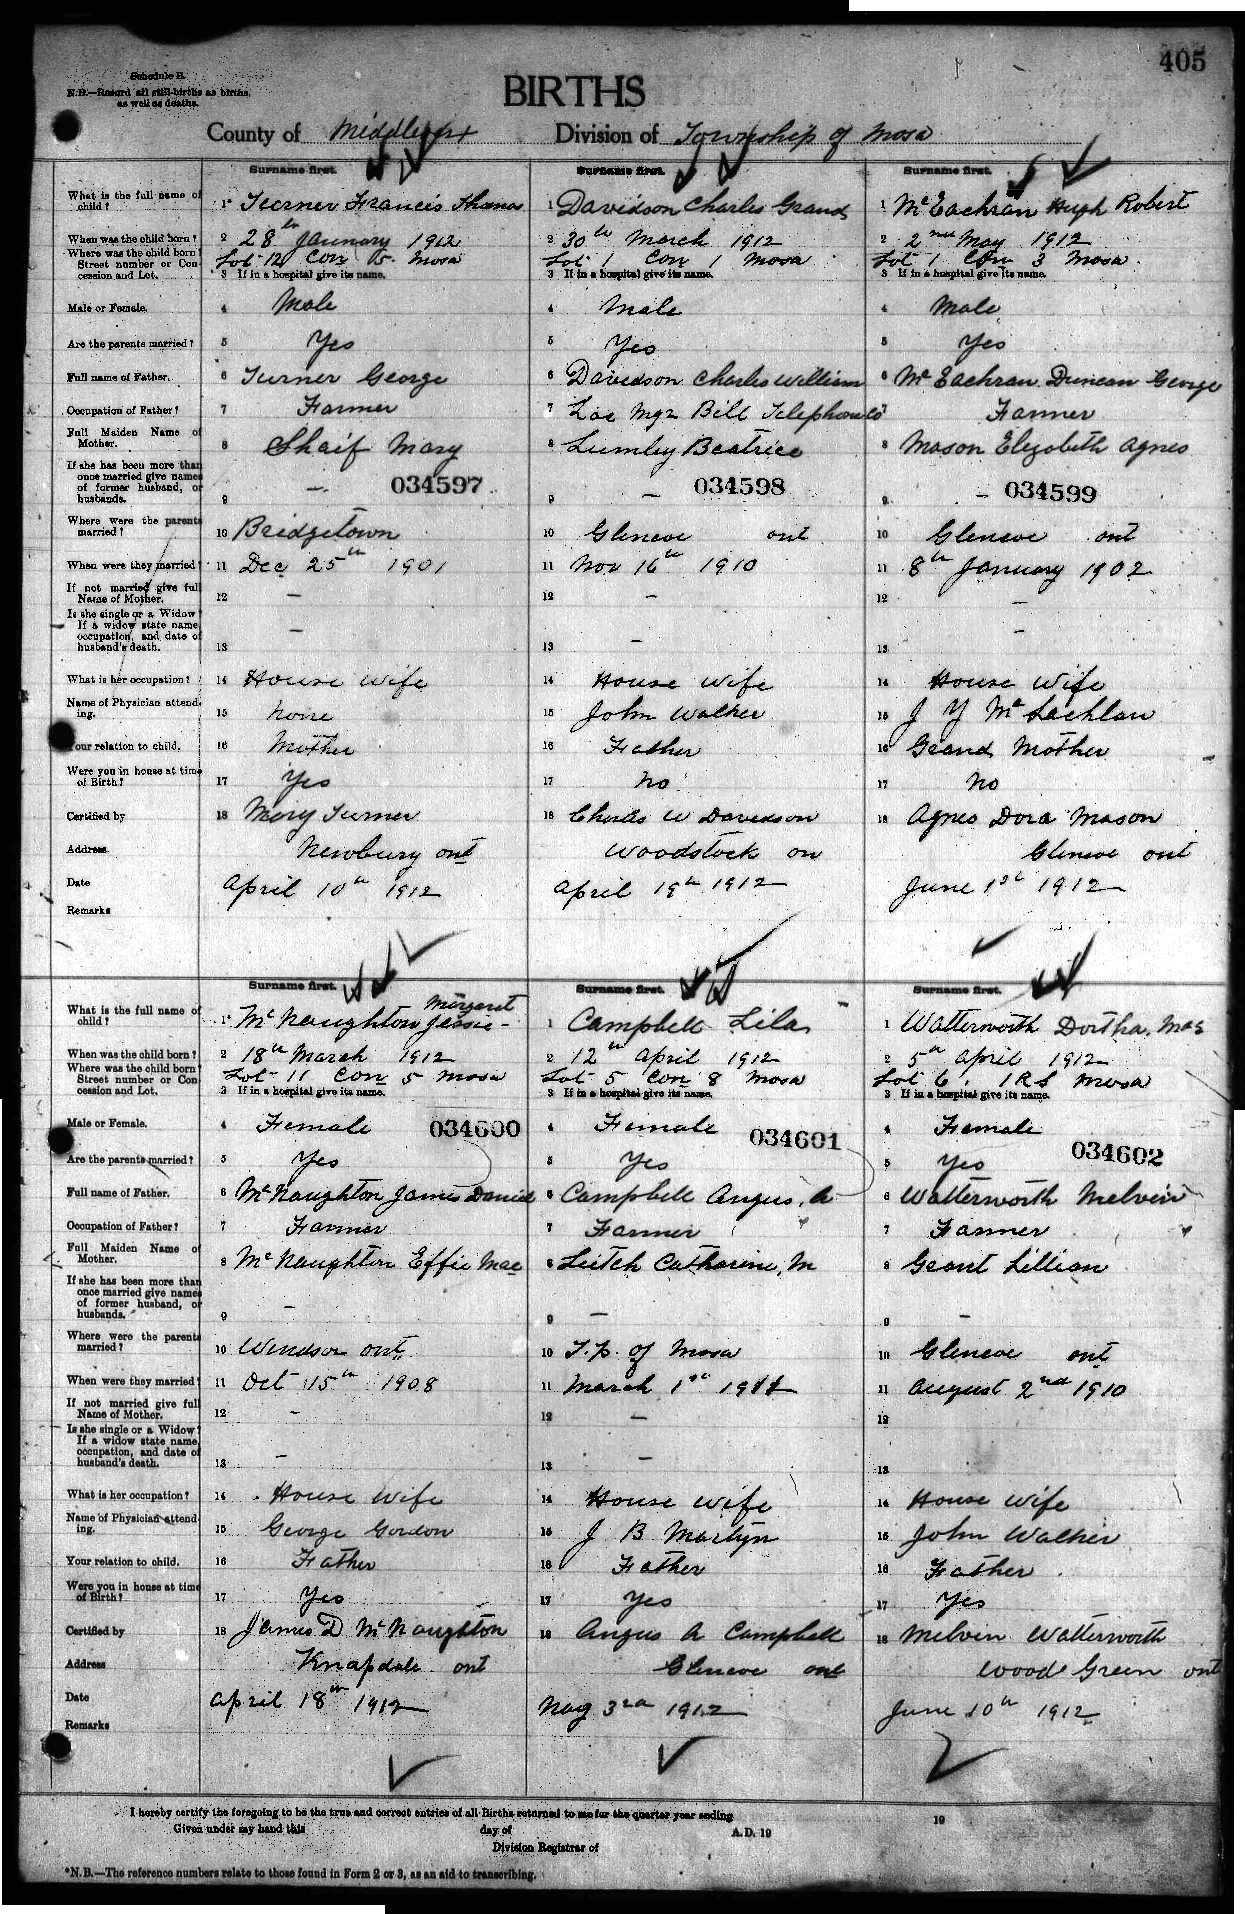 405
Schedule B.
N.B.—Record all still-births as births,
as well as deaths.
BIRTHS
County of Middlesex Division of Township of Mosa
Surname first. Surname first. Surname first.
What is the full name of child? 1* Turner Francis Thomas 1 Davidson Charles Grand 1 McEachran Hugh Robert
When was the child born? 2 28th January 1912 2 30th March 1912 2 2nd May 1912
Where was the child born? Street number or Concession and Lot. Lot 12 Con Mosa Lot 1 Con 1 Mosa Lot 1 Con 3 Mosa
3 If in a hospital give its name. 3 If in a hospital give its name. 3 If in a hospital give its name.
Male or Female. 4 Male 4 Male 4 Male
Are the parents married? 5 Yes 5 Yes 5 Yes
Full name of Father. 6 Turner George 6 Davidson Charles William 6 McEachran Duncan George
Occupation of Father? 7 Farmer 7 Loc Mgr Bell Telephone Co 7 Farmer
Full Maiden Name of Mother. 8 Shaif Mary 8 Lumley Beatrice 8 Mason Elizabeth Agnes
If she has been more than once married give names of former husband, or husbands. 9 — 034597 9 — 034598 9 — 034599
Where were the parents married? 10 Bridgetown 10 Glencoe ont 10 Glencoe ont
When were they married? 11 Dec 25th 1901 11 Nov 16th 1910 11 8th January 1902
If not married give full Name of Mother. 12 — 12 — 12 —
Is she single or a Widow? If a widow state name, occupation, and date of husband's death. 13 — 13 — 13 —
What is her occupation? 14 House Wife 14 House Wife 14 House Wife
Name of Physician attending. 15 None 15 John Walker 15 J Y McLachlan
Your relation to child. 16 Mother 16 Father 16 Grand Mother
Were you in house at time of Birth? 17 Yes 17 No 17 No
Certified by 18 Mary Turner 18 Charles W Davidson 18 Agnes Dora Mason
Address Newbury ont Woodstock on Glencoe ont
Date April 10th 1912 April 19th 1912 June 1st 1912
Remarks
Surname first. Surname first. Surname first.
What is the full name of child? 1* McNaughton Jessie Margaret 1 Campbell Lila 1 Watterworth Dortha, Mae
When was the child born? 2 18th March 1912 2 12th April 1912 2 5th April 1912
Where was the child born? Street number or Concession and Lot. Lot 11 Con 5 Mosa Lot 5 Con 8 Mosa Lot 6, 1 R S Mosa
3 If in a hospital give its name. 3 If in a hospital give its name. 3 If in a hospital give its name.
Male or Female. 4 Female 034600 4 Female 034601 4 Female 034602
Are the parents married? 5 Yes 5 Yes 5 Yes
Full name of Father. 6 McNaughton James Daniel 6 Campbell Angus, A 6 Watterworth Melvin
Occupation of Father? 7 Farmer 7 Farmer 7 Farmer
Full Maiden Name of Mother. 8 McNaughton Effie Mae 8 Leitch Catharine, M 8 Grant Lillian
If she has been more than once married give names of former husband, or husbands. 9 — 9 — 9 —
Where were the parents married? 10 Windsor ont 10 T.p. of Mosa 10 Glencoe ont
When were they married? 11 Oct 15th 1908 11 March 1st 1911 11 August 2nd 1910
If not married give full Name of Mother. 12 — 12 — 12
Is she single or a Widow? If a widow state name, occupation, and date of husband's death. 13 — 13 — 13
What is her occupation? 14 House Wife 14 House Wife 14 House Wife
Name of Physician attending. 15 George Gordon 15 J B Martyn 15 John Walker
Your relation to child. 16 Father 16 Father 16 Father
Were you in house at time of Birth? 17 Yes 17 Yes 17 Yes
Certified by 18 James D McNaughton 18 Angus A Campbell 18 Melvin Watterworth
Address Knapdale ont Glencoe ont Wood Green ont
Date April 18th 1912 May 3rd 1912 June 10th 1912
Remarks
I hereby certify the foregoing to be the true and correct entries of all Births returned to me for the quarter year ending 19
Given under my hand this day of A.D. 19
Division Registrar of
*N.B.—The reference numbers relate to those found in Form 2 or 3, as an aid to transcribing.